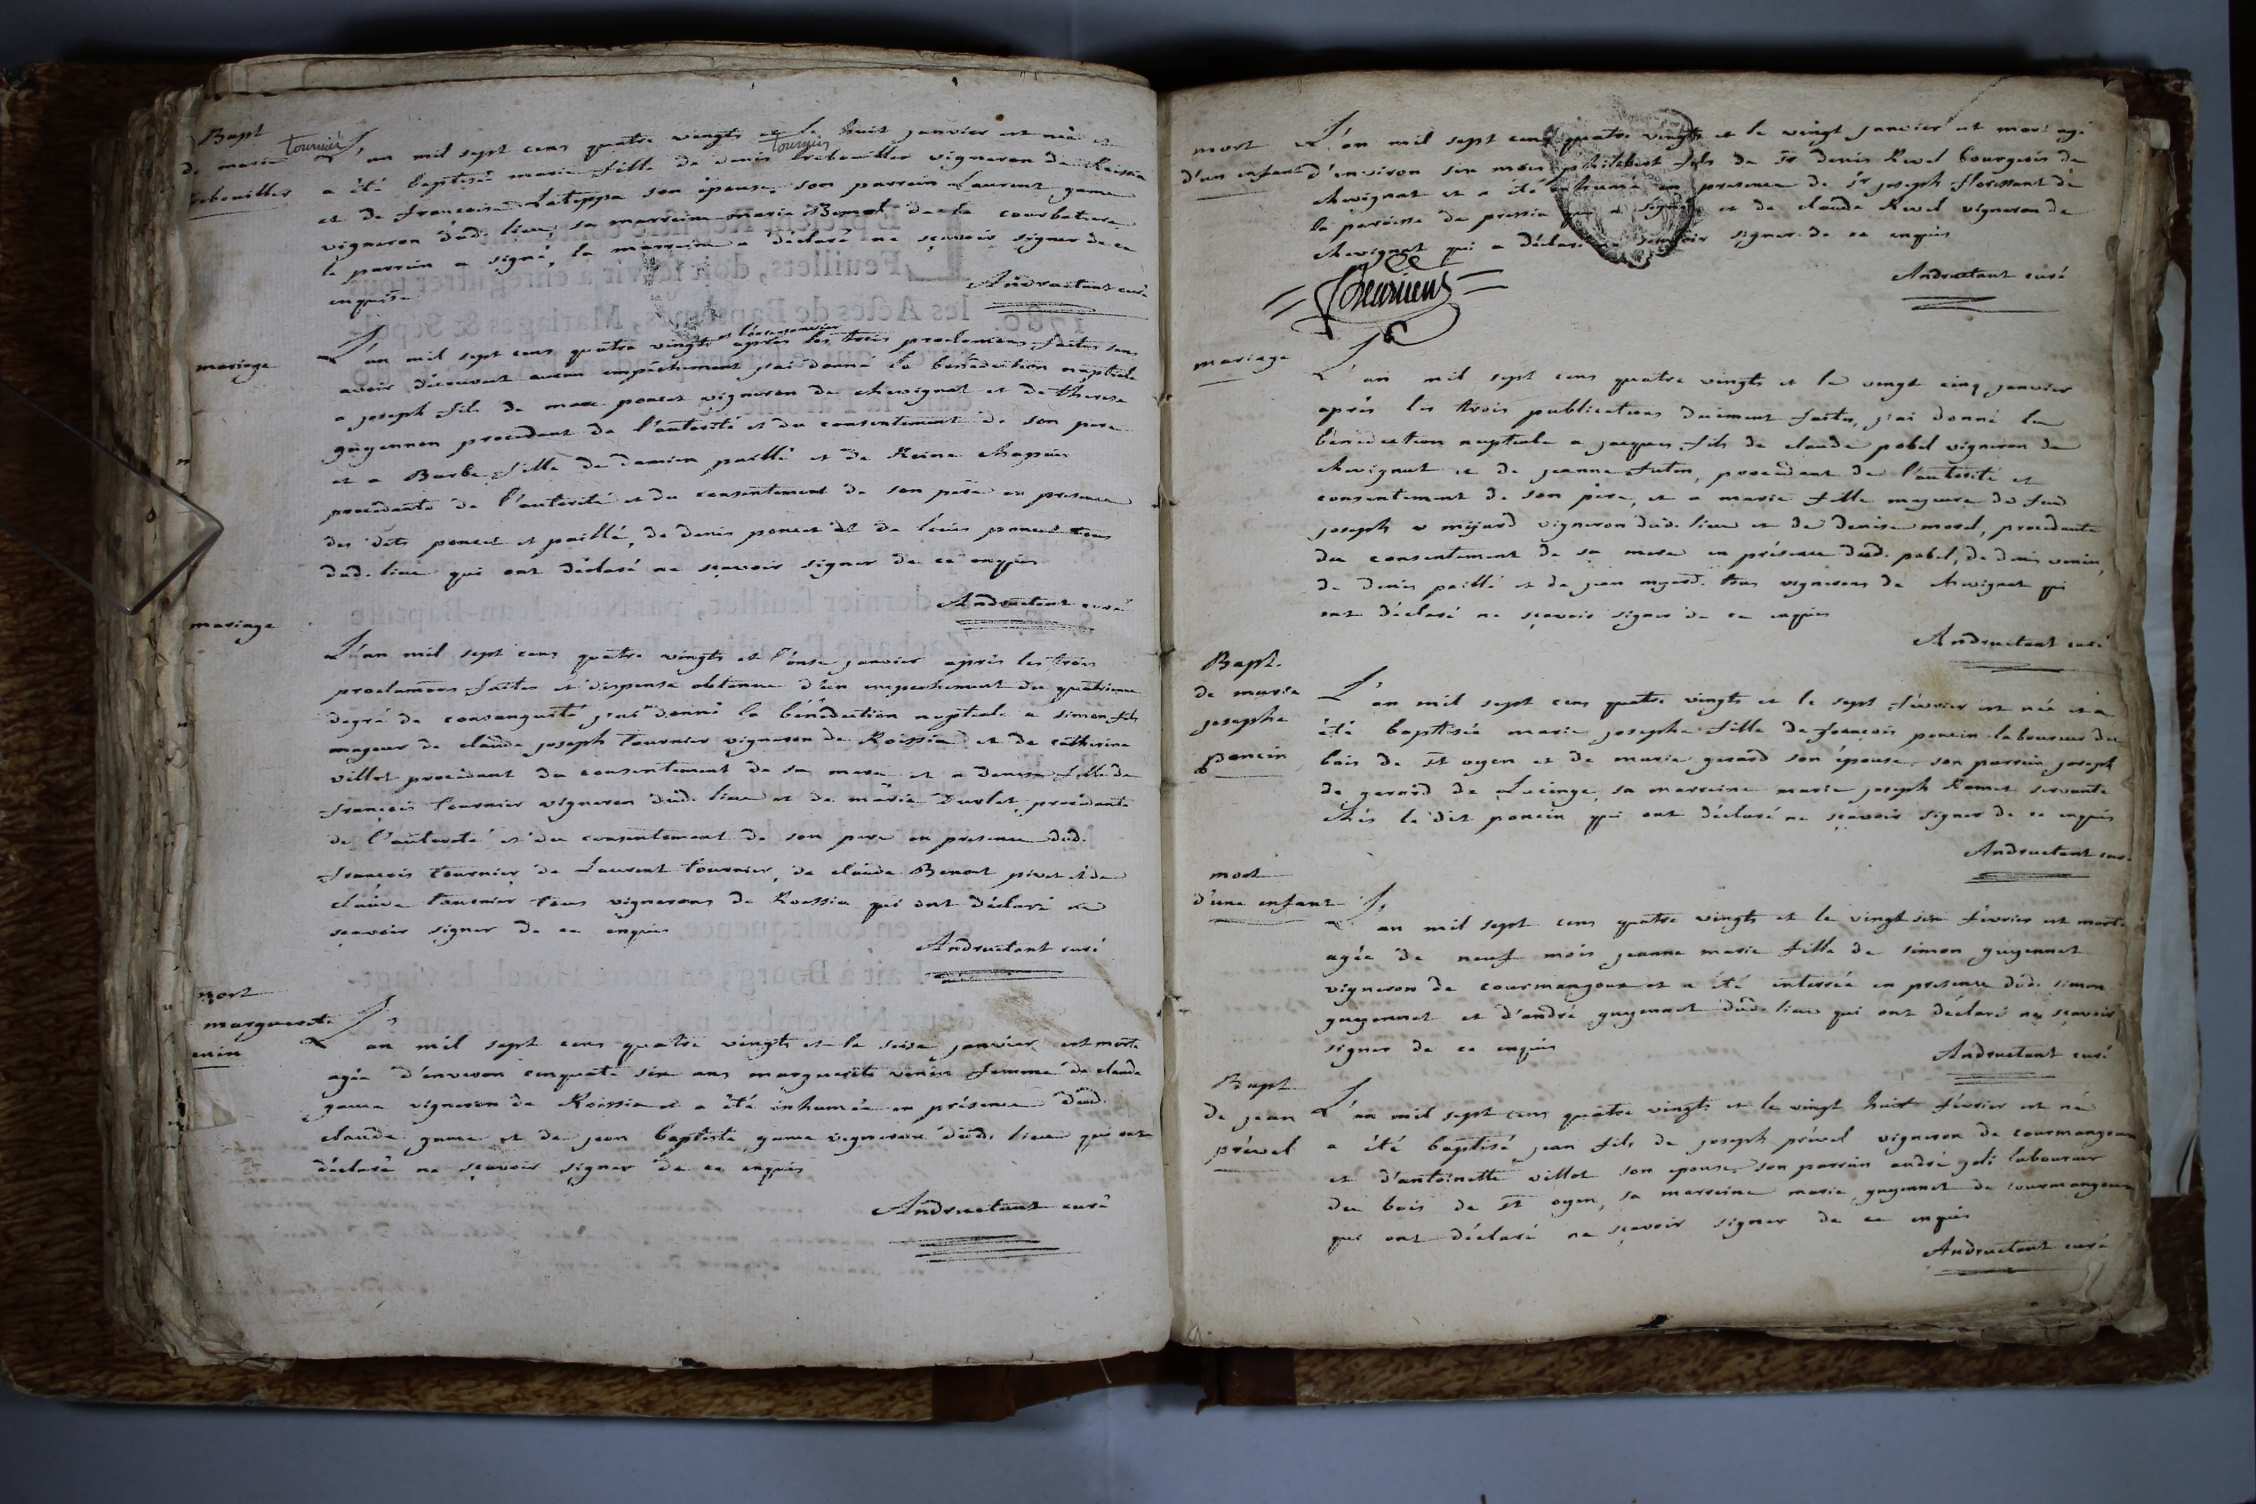 Bapt
de marie tournier
trebouiller
L'an mil sept cens quatre vingts et le huit janvier est née et
a été baptisée marie fille de denis tournier trebouiller vigneron de Roissia
et de françoise son épouse, son parrain Laurent game
vigneron dud. lieu, sa marreine marie Benoit de la courbatiere
le parrain a signé, la marreine a déclaré ne sçavoir signer de ce
enquise
Andruetant curé
mariage
L'an mil sept cens quatre vingts et l'onze janvier après les trois proclamaons faites sans
avoir découvert aucun empêchement j'ai donné la bénédiction nuptiale
a joseph fils de marc poncet vigneron de chevignat et de therese
guyennon procedant de l'autorité et du consentement de son pere
et a Barbe fille de damien paillé et de Reine chapuis
procedante de l'autorité et du consentement de son père en presence
des dits poncet et paillé, de denis poncet et de louis poncet tous
dud. lieu qui ont déclaré ne sçavoir signer de ce enquis
Andruetant curé
mariage
L'an mil sept cens quatre vingts et l'onse janvier après les trois
proclamaons faites et dispense obtenue d'un empechement du quatrieme
degré de consanguité j'ai donné la bénédiction nuptiale a simon fils
majeur de claude joseph tournier vigneron de Roissia et de catherine
villot procedant du consentement de sa mere et a denise fille de
françois tournier vigneron dud. lieu et de marie Durlet procedante
de l'autorité et du consentement de son pere en presence dud.
françois tournier, de Laurent tournier, de claude Benoit pivet et de
claude tournier tous vignerons de Roissia qui ont déclaré ne
sçavoir signer de ce enquis
Andruetant curé
mort
marguerite
L'an mil sept cens quatre vingts et le seise janvier est morte
agée d'environ cinquante six ans marguerite venin femme de claude
game vigneron de Roissia et a été inhumée en présence dud.
claude game et de jean baptiste game vignerons dud. lieu qui ont
déclaré ne sçavoir signer de ce enquis
Andruetant curé
mort
d'un enfant
L'an mil sept cens quatre vingts et le vingt janvier est mort agé
d'environ six mois philibert fils de Sr. denis Revel bourgeois de
chevignat et a été inhumé en presence de Sr joseph florissant de
la paroisse de pressia qui a signé et de claude Revel vigneron de
chevignat qui a déclaré ne sçavoir signer de ce enquis
Andruetant curé
mariage
L'an mil sept cens quatre vingts et le vingt cinq janvier
après les trois publications duement faites, j'ai donné la
bénédiction nuptiale a jacques fils de claude pobel vigneron de
chevignat et de jeanne futin, procedant de l'autorité et
consentement de son père, et a marie fille majeure de feu
joseph mijard vigneron dud. lieu et de denise morel, procedante
du consentement de sa mere en présence dud. pobel, de denis venin,
de denis paillé et de jean myard tous vignerons de chevignat qui
ont déclaré ne sçavoir signer de ce enquis
Andruetant curé
Bapt.
de marie
josephe
poncin
L'an mil sept cens quatre vingts et le sept février est née et a
été baptisée marie josephe fille de françois poncin laboureur du
bois de St oyen et de marie gerard son épouse, son parrain joseph
de gerard de Lucinge, sa marreine marie joseph Romet servante
chés le dit poncin qui ont déclaré ne sçavoir signer de ce enquis
Andruetant curé
mort
d'une enfant
L'an mil sept cens quatre vingts et le vingt six février est morte
agée de neuf mois jeanne marie fille de simon guyennet
vigneron de courmangoux et a été interrée en presence dud. simon
guyennet et d'andré guyennet dud. lieu qui ont déclaré ne sçavoir
signer de ce enquis
Andruetant curé
Bapt
de jean
prével
L'an mil sept cens quatre vingts et le vingt huit février est né
a été baptisé jean fils de joseph prével vigneron de courmangoux
et d'antoinette villot son epouse, son parrain andré joli laboureur
du bois de St oyen, sa marreine marie guyennet de courmangoux
qui ont déclaré ne sçavoir signer de ce enquis
Andruetant curé